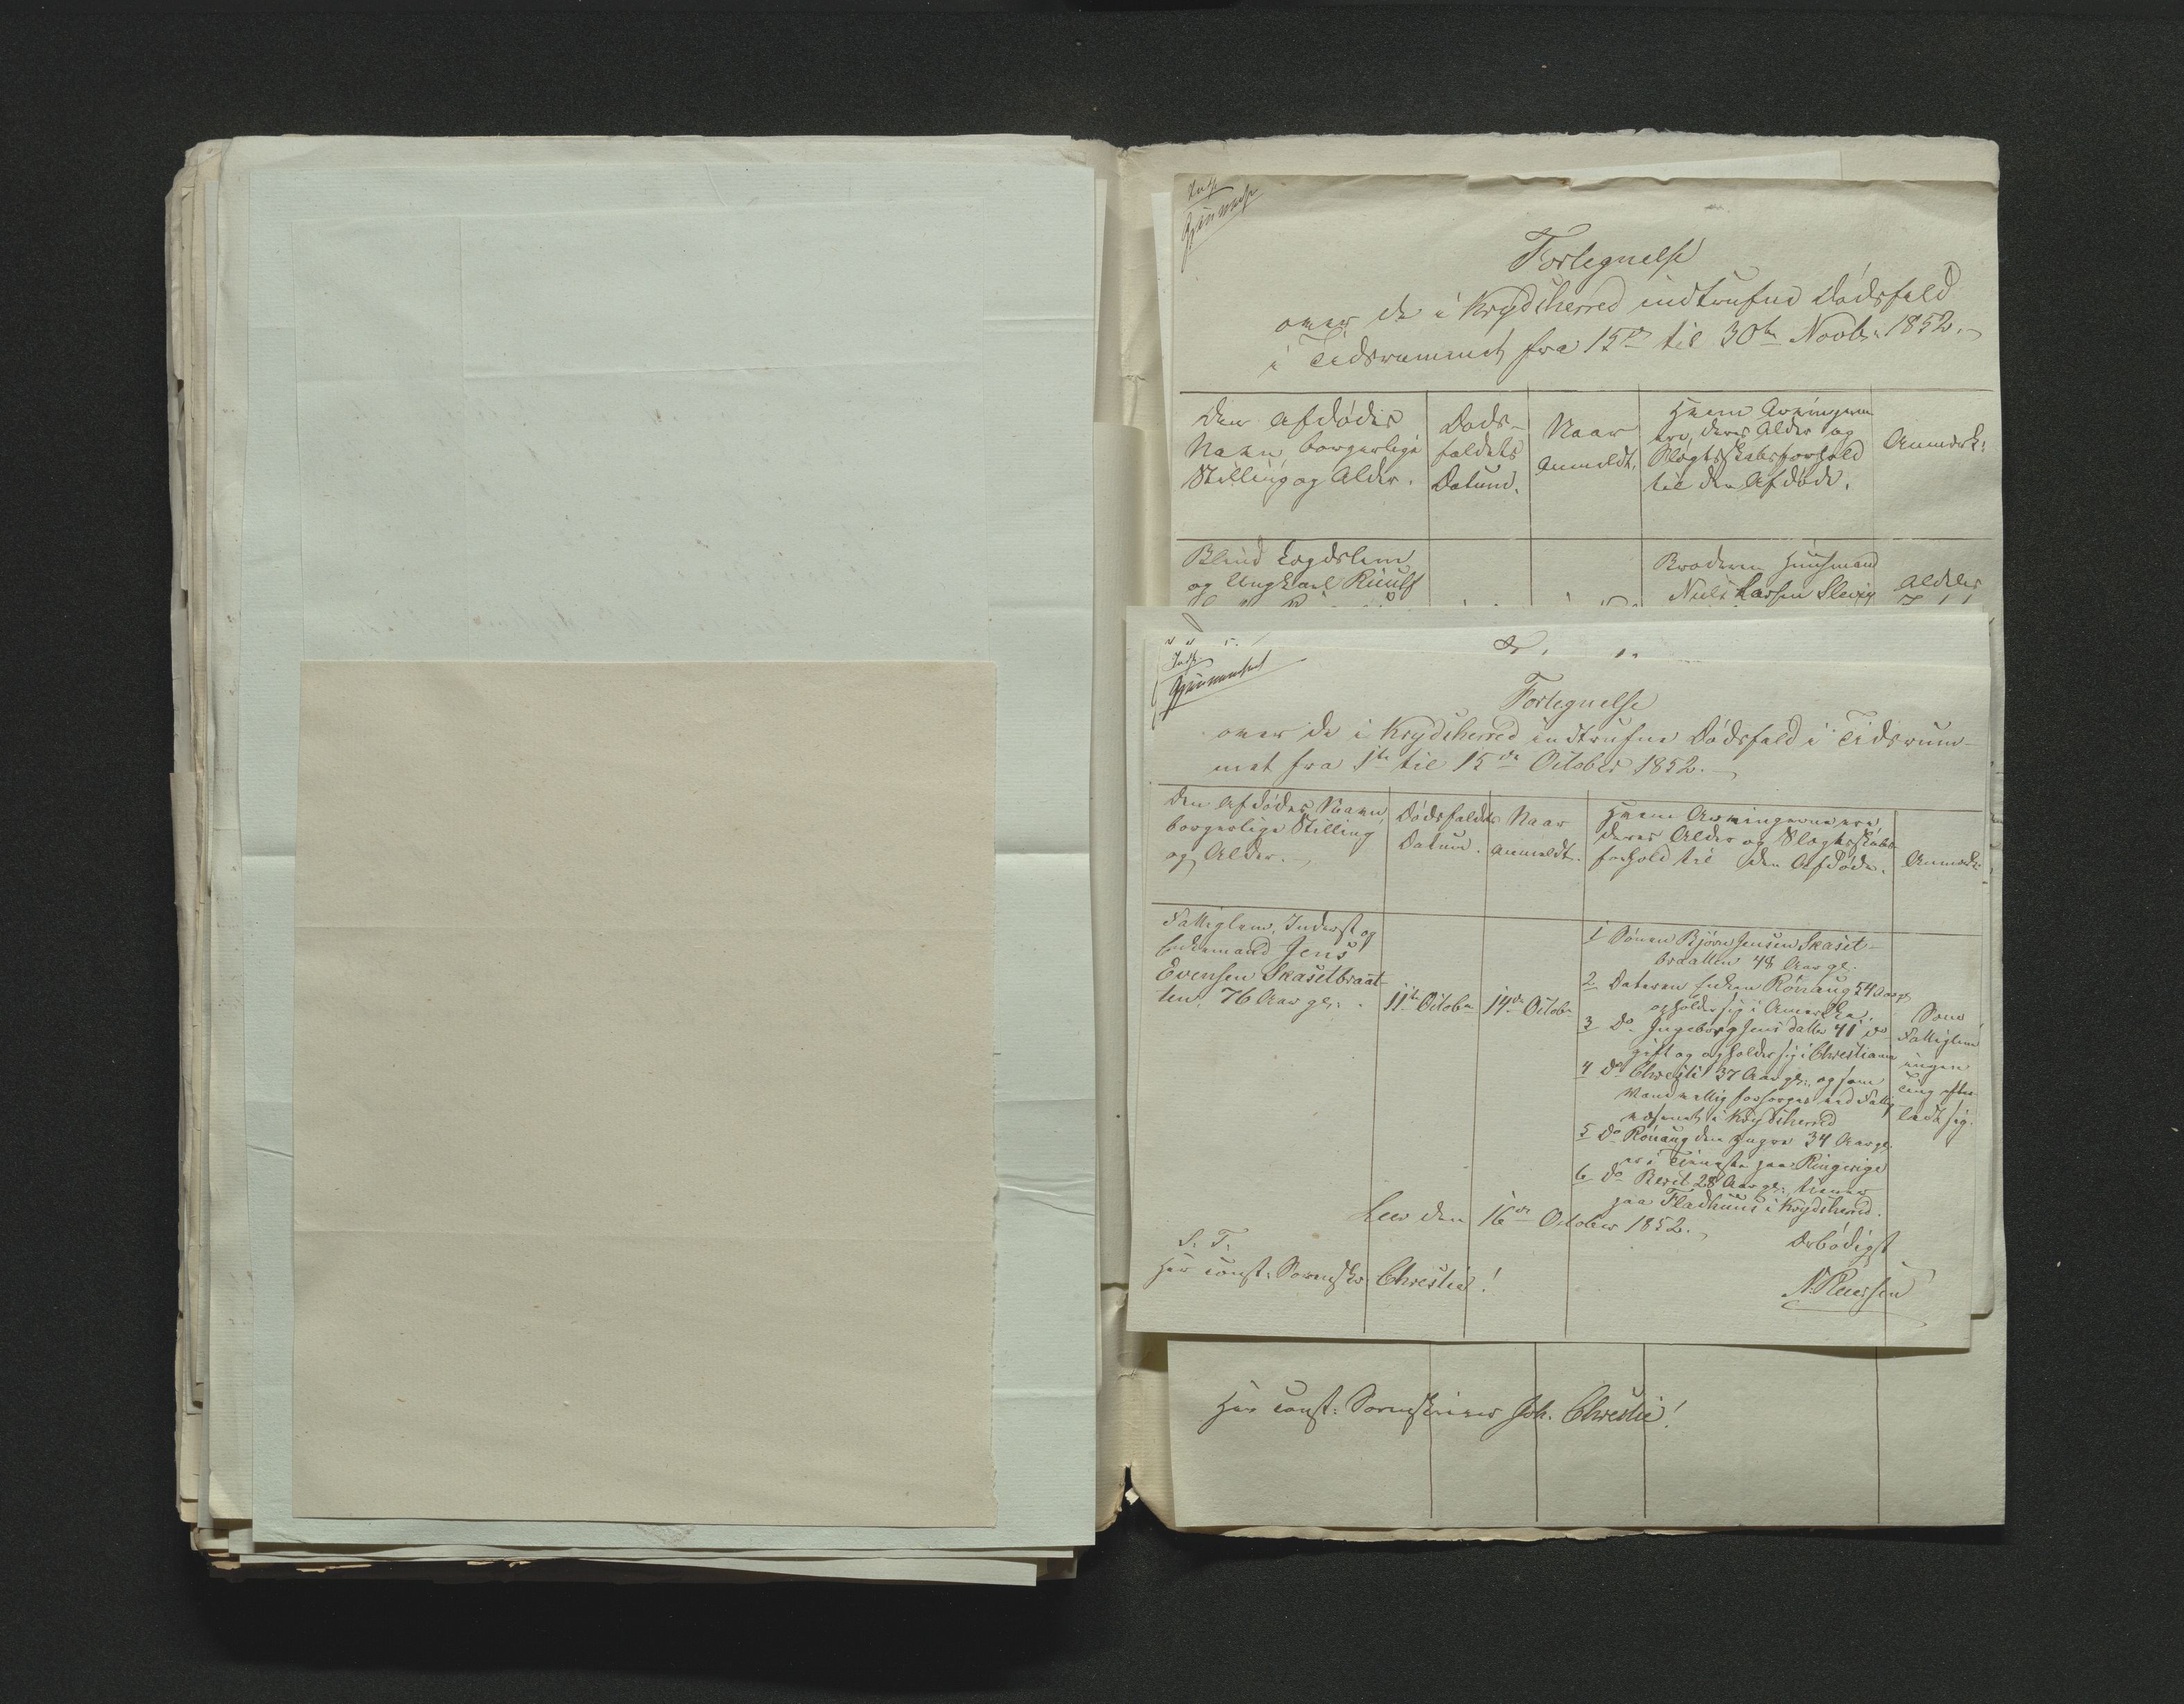 Indf.
Forlegnelse
over de i Krydsherred indtrufne Dødsfald
i Tidsrummet fra 15de til 30te Novbr. 1852.
Den Afdødes
Navn, borgerlige
Stilling og Alder.
Døds-
faldets
Datum.
Naar
Anmeldt.
Hvem Arvingerne
ere, deres Alder og
Slægtskabsforhold
til den Afdøde.
Anmærk:
Blind Lægdslem
og Ungkarl Ruulf
Broderen Huusmand
Niels Larsen Sleviig
Aldeles
Indf.
Fortegnelse
over de i Krydsherred indtrufne Dødsfald i Tidsrum-
met fra 1te til 15de October 1852.
Den Afdødes Navn,
borgerlige Stilling
og Alder.
Dødsfaldets
Datum.
Naar
Anmeldt.
Hvem Arvingerne ere,
deres Alder og Slægtskabs-
forhold til den Afdøde.
Anmærk:
Fattiglem, Inderst og
Enkemand Jens
Evensen Skasetbraat-
ten, 76 Aar gl.
11te Octobr
14de Octobr
1 Sønnen Bjørn Jensen Skaset-
braatten 48 Aar gl.
2 Datteren Enken Rønaug 54 Aar gl.
opholder sig i Amerika.
3 Do Ingeborg Jensdatter 41 do
gift og opholder sig i Christiania
4 Do Christi 37 Aar gl. og som
Vanvittig forsørges ved Fattig-
væsenet i Krydsherred
5 Do Rønaug den yngre 34 Aar gl.
er i Tieneste paa Ringerige
6 Do Berit 28 Aar gl. tiener
paa Fladhuus i Krydsherred.
Som
Fattiglem
ingen
Ting efter-
ladt sig.
Leer den 16de October 1852.
Ærbødigst
N. Peersen
S. T.
Hr const: Sorenskr. Christie!
Hr const: Sorenskriver Joh. Christie!